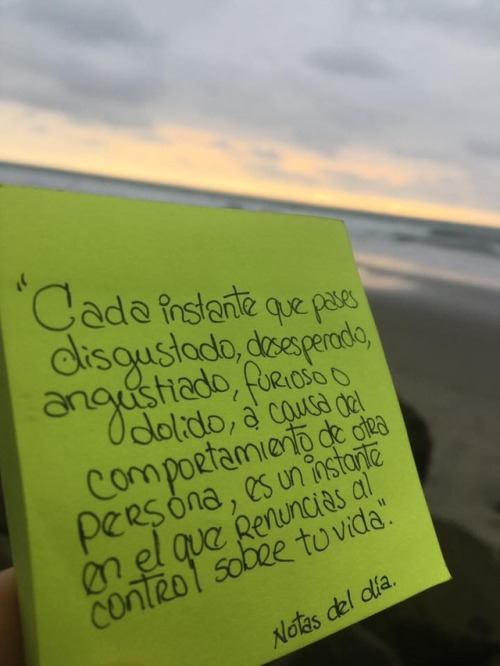 "Cada instante que pases
disgustado, desesperado,
angustiado, furioso o
dolido, a causa del
comportamiento de otra
persona, es un instante
en el que renuncias al
control sobre tu vida".
Notas del día.